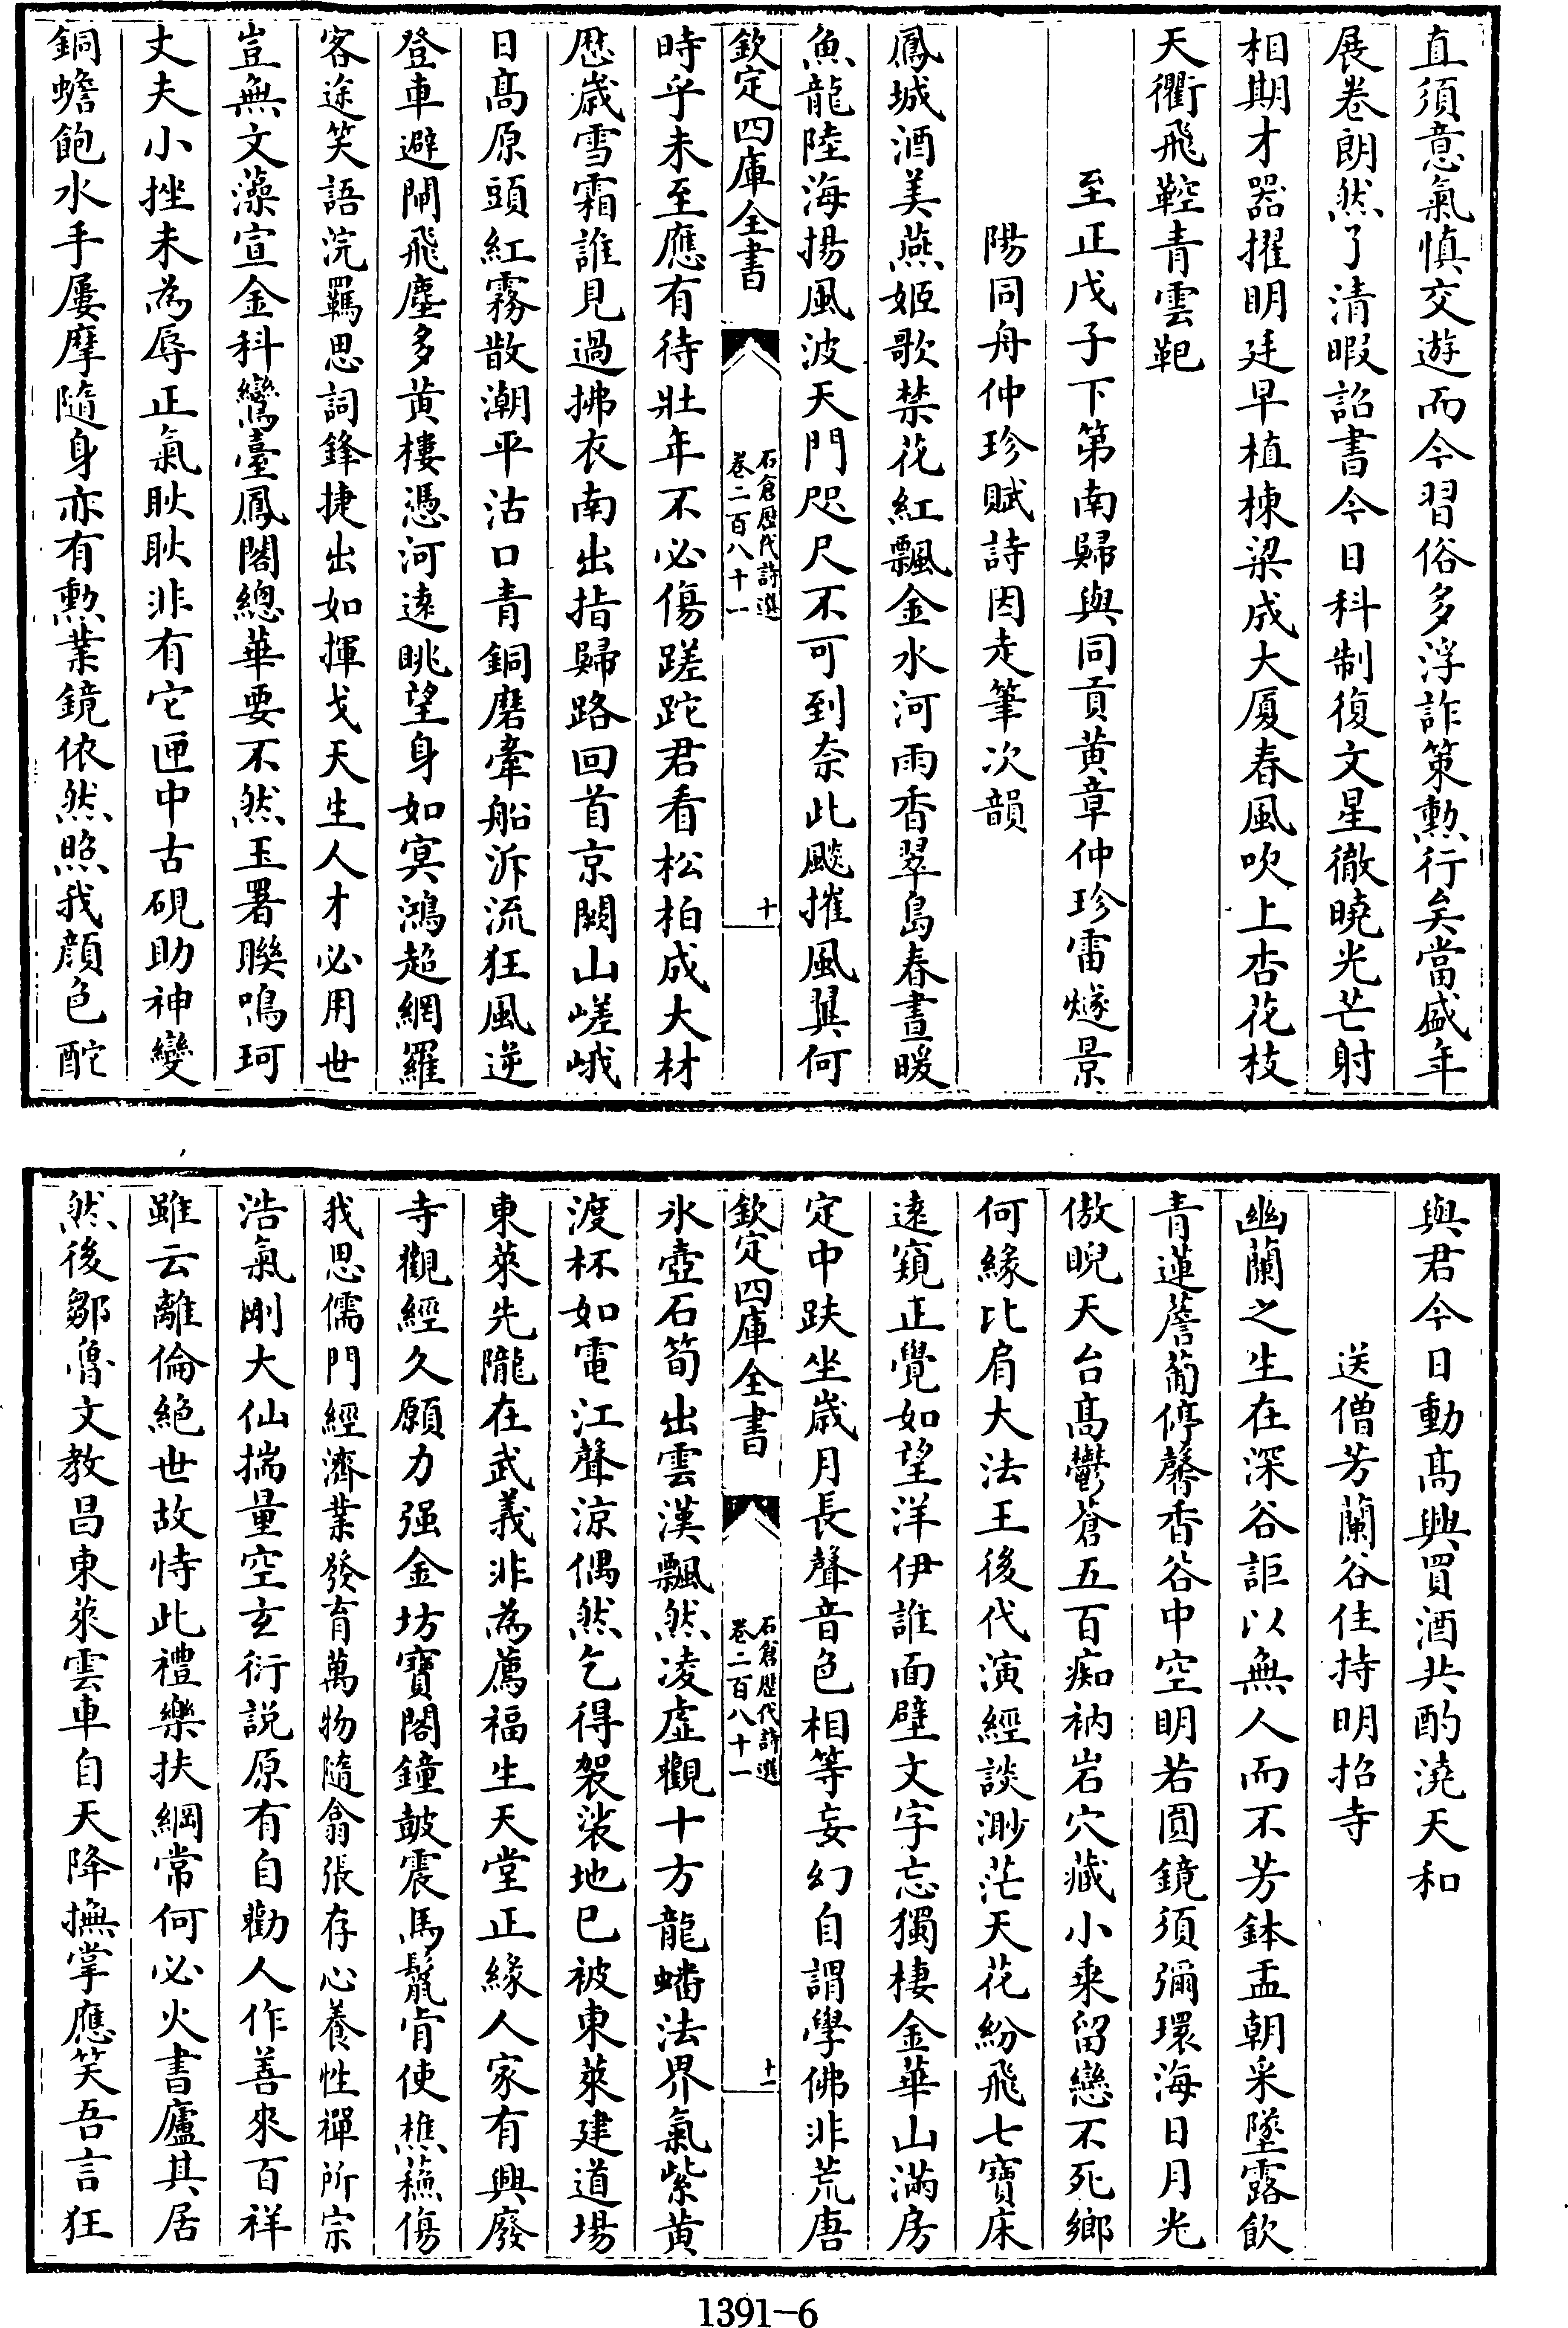 直須意氣慎交遊而今習俗多浮詐策勲行矣當盛年
展卷朗然了清暇詔書今日科制復文星徹曉光芒射
相期才器擢明廷早植棟梁成大厦春風吹上杏花枝
天衢飛鞚青雲靶
至正戊子下第南歸與同貢黄章仲珍雷燧景
陽同舟仲珍賦詩因走筆次韻
鳳城酒美燕姬歌禁花紅飄金水河雨香翠島春晝暖
魚龍陸海揚風波天門咫尺不可到奈此颷摧風翼何
欽定四庫全書
石倉歴代詩選
卷二百八十一
十
時乎未至應有待壯年不必傷蹉跎君看松柏成大材
歴歳雪霜誰見過拂衣南出指歸路回首京闕山嵯峨
日高原頭紅霧散潮平沽口青銅磨牽船泝流狂風逆
登車避閘飛塵多黄樓憑河遠眺望身如㝠鴻超網羅
客途笑語浣羈思詞鋒捷出如揮戈天生人才必用世
豈無文藻宣金科鸞臺鳳閣總華要不然玉署聨鳴珂
丈夫小挫未為辱正氣耿耿非有它匣中古硯助神變
銅蟾飽水手屢摩隨身亦有勲業鏡依然照我顔色酡
與君今日動高興買酒共酌澆天和
送僧芳蘭谷住持明招寺
幽蘭之生在深谷詎以無人而不芳鉢盂朝采墜露飲
青蓮薝蔔停馨香谷中空明若圓鏡須彌環海日月光
傲睨天台高鬱蒼五百痴衲岩穴藏小乘留戀不死鄉
何緣比肩大法王後代演經談渺茫天花紛飛七寶床
遠窺正覺如望洋伊誰面壁文字忘獨棲金華山滿房
定中趺坐歳月長聲音色相等妄幻自謂學佛非荒唐
欽定四庫全書
石倉歴代詩選
卷二百八十一
十一
氷壺石筍出雲漢飄然凌虛觀十方龍蟠法界氣紫黄
渡杯如電江聲涼偶然乞得袈裟地已被東萊建道場
東萊先隴在武義非為薦福生天堂正緣人家有興廢
寺觀經久願力强金坊寶閣鐘皷震馬鬛肯使樵蘓傷
我思儒門經濟業發育萬物隨翕張存心養性禪所宗
浩氣剛大仙揣量空玄衍説原有自勸人作善來百祥
雖云離倫絶世故恃此禮樂扶綱常何必火書廬其居
然後鄒魯文教昌東萊雲車自天降撫掌應笑吾言狂
1391-6